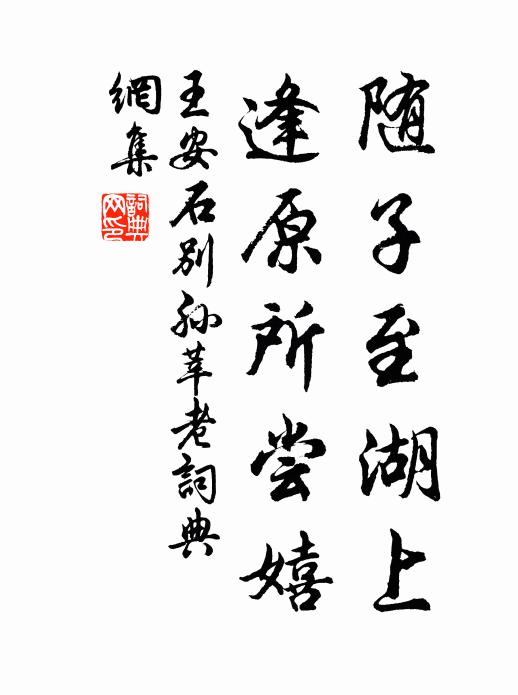 随子至湖上
逢原所尝嬉
王安石别孙莘老詞典
網集
詞典
网印